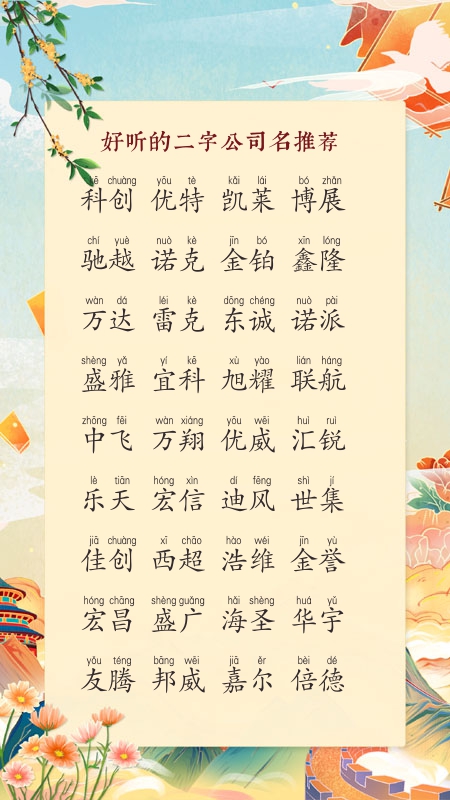 好听的二字公司名推荐
kē chuàng yōu tè kǎi lái bó zhǎn
科创 优特 凯莱 博展
chí yuè nuò kè jīn bó xīn lóng
驰越 诺克 金铂 鑫隆
wàn dá léi kè dōng chéng nuò pài
万达 雷克 东诚 诺派
shèng yǎ yí kē xù yào lián háng
盛雅 宜科 旭耀 联航
zhōng fēi wàn xiáng yōu wēi huì ruì
中飞 万翔 优威 汇锐
lè tiān hóng xìn dí fēng shì jí
乐天 宏信 迪风 世集
jiā chuàng xī chāo hào wéi jīn yù
佳创 西超 浩维 金誉
hóng chāng shèng guǎng hǎi shèng huá yǔ
宏昌 盛广 海圣 华宇
yǒu téng bāng wēi jiā ěr bèi dé
友腾 邦威 嘉尔 倍德